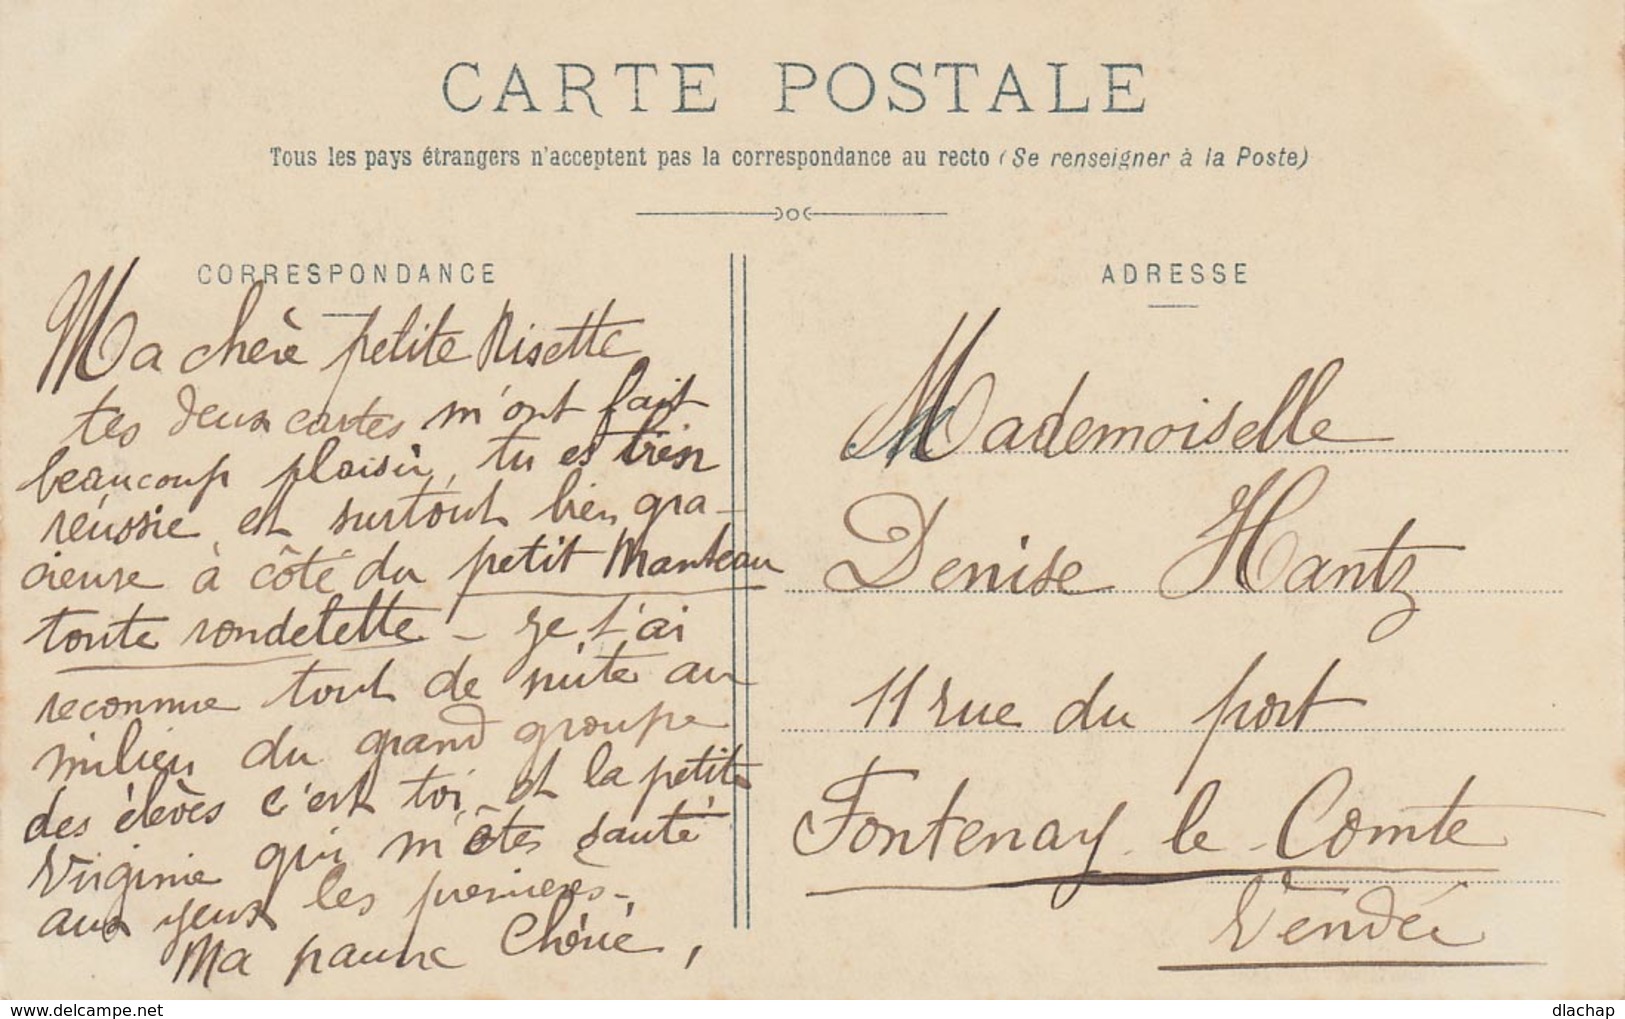 CARTE POSTALE
Tous les pays étrangers n'acceptent pas la correspondance au recto (Se renseigner à la Poste)
CORRESPONDANCE
Ma chère petite Nisette
tes deux cartes m'ont fait
beaucoup plaisir, tu es très
réussie et surtout bien gra-
cieuse à côté du petit Manteau
toute rondelette - je t'ai
reconnue tout de suite au
milieu du grand groupe
des élèves c'est toi et la petite
Virginie qui m'êtes sauté
aux yeux les premières.
Ma pauvre Chérie,
ADRESSE
Mademoiselle
Denise Hantz
11 rue du port
Fontenay-le-Comte
Vendée
www.delcampe.net
dlachap